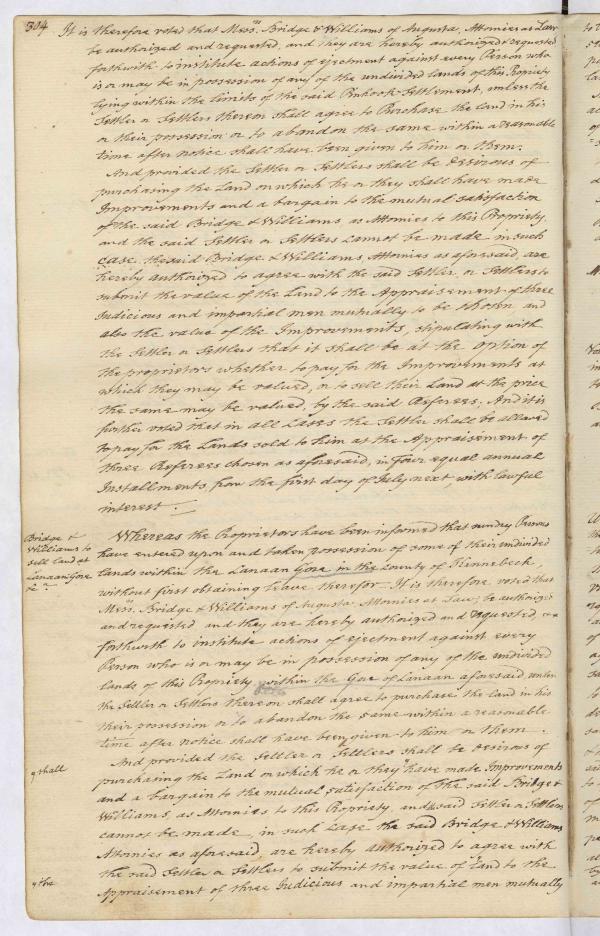 304
It is therefore voted that Mess.rs Bridge & Williams of Augusta, Attornies at Law
be authorized and requested, and they are hereby authorized & requested
forthwith to institute actions of ejectment against every Person who
is or may be in possession of any of the undivided lands of this Propriety
lying within the limits of the said Pinhook Settlement, unless the
Settler or Settlers thereon shall agree to Purchase the land in his
or their possession or to abandon the same within a reasonable
time after notice shall have been given to him or them.
And provided the Settler or Settlers shall be desirous of
purchasing the Land on which he or they shall have made
Improvements and a bargain to the mutual satisfaction
of the said Bridge & Williams as Attornies to this Propriety
and the said Settler or Settlers cannot be made in such
case the said Bridge & Williams Attornies as aforesaid, are
hereby authorized to agree with the said Settler or Settlers to
submit the value of the Land to the Appraisement of three
Judicious and impartial men mutually to be chosen and
also the value of the Improvements, stipulating with
the Settler or Settlers that it shall be at the option of
the proprietors whether to pay for the Improvements at
which they may be valued, or to sell their Land at the price
the same may be valued, by the said Referees. And it is
further voted that in all cases the Settler shall be allowed
to pay for the Lands sold to him at the Appraisement of
three Referees chosen as aforesaid, in four equal annual
Installments, from the first day of July next, with lawful
interest.
Bridge &
Williams to
sell land at
Canaan Gore
&c.
Whereas the Proprietors have been informed that sundry Persons
have entered upon and taken possession of some of their undivided
lands within the Canaan Gore in the County of Kinnebeck,
without first obtaining leave therefor. It is therefore voted that
Mess.rs Bridge & Williams of Augusta, Attornies at Law, be authorized
and requested and they are hereby authorized and requested,
forthwith to institute actions of ejectment against every
Person who is or may be in possession of any of the undivided
lands of this Propriety within the Gore of Canaan aforesaid unless
the Settler or Settlers thereon shall agree to purchase the land in his
their possession or to abandon the same within a reasonable
time after notice shall have been given to him or them.
And provided the Settler or Settlers shall be desirous of
shall
purchasing the Land on which he or they have made Improvements
and a bargain to the mutual satisfaction of the said Bridge &
Williams, as Attornies to this Propriety, and said Settler or Settlers
cannot be made, in such case the said Bridge & Williams
Attornies as aforesaid are hereby authorized to agree with
the said Settler or Settlers to submit the value of land to the
the
Appraisement of three Judicious and impartial men mutually